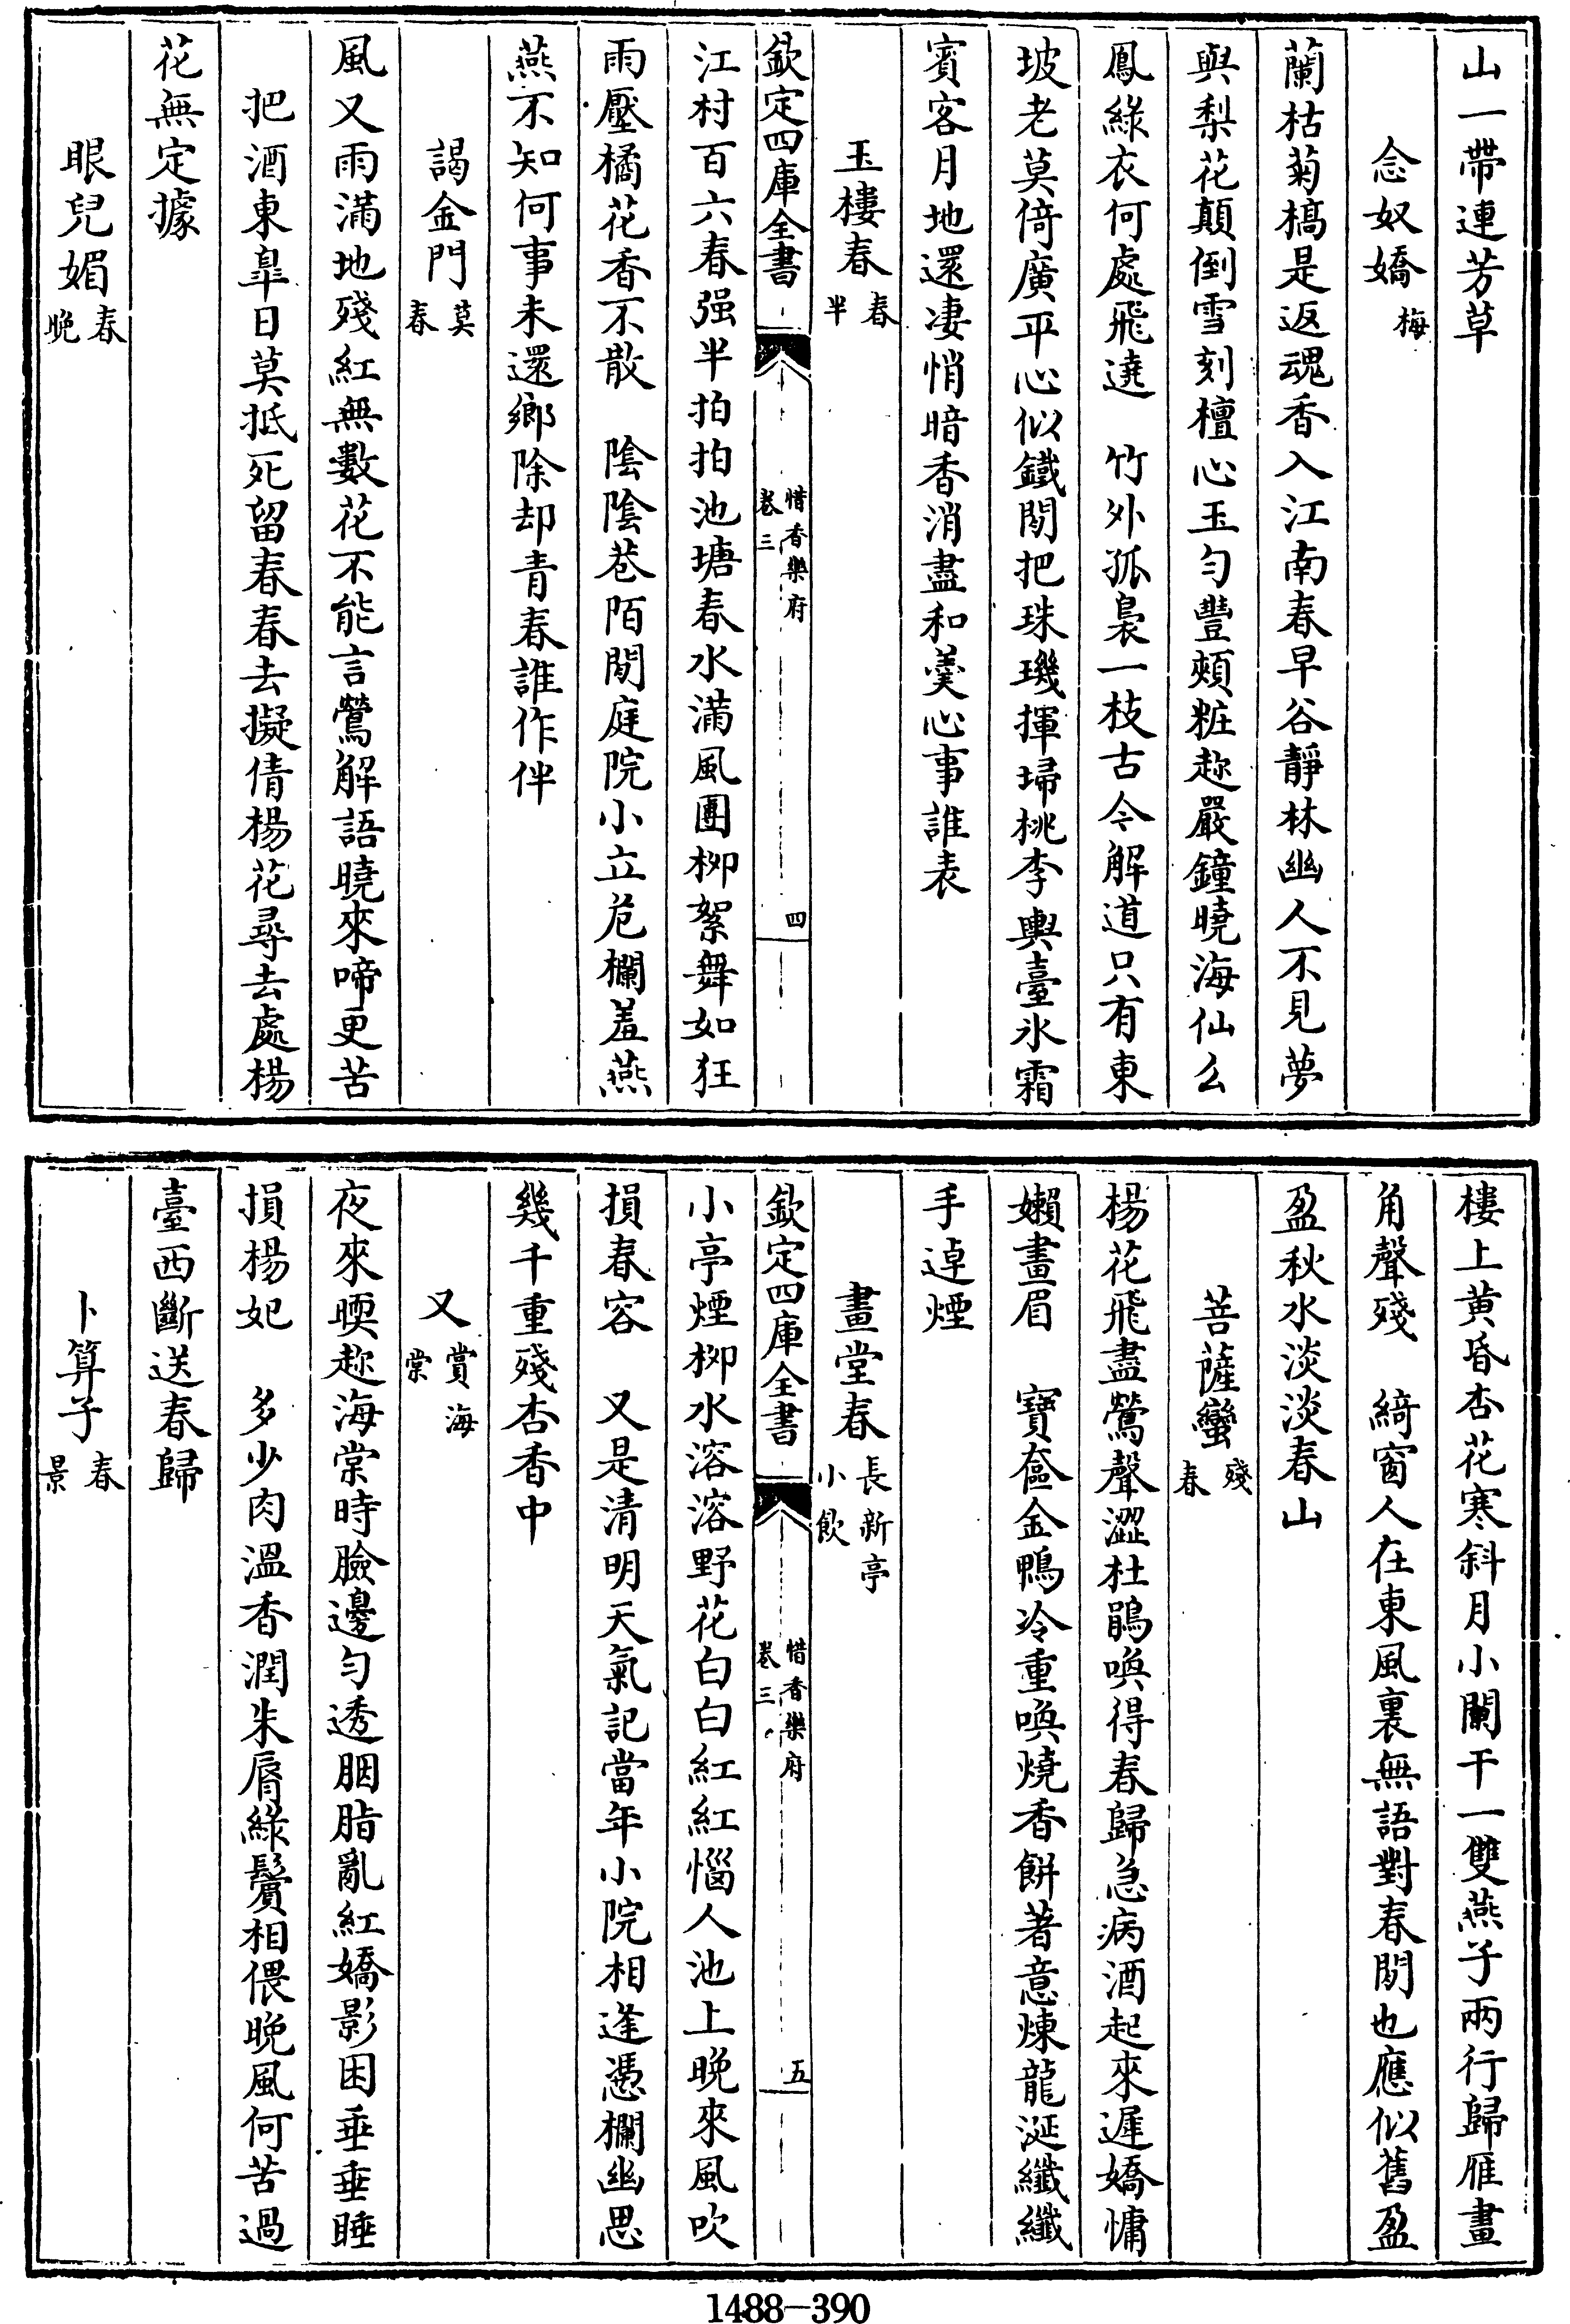 山一帶連芳草
念奴嬌梅
蘭枯菊槁是返魂香入江南春早谷靜林幽人不見夢
與梨花顛倒雪刻檀心玉勻豐頰粧趂嚴鐘曉海仙么
鳳綠衣何處飛遶　竹外孤裊一枝古今解道只有東
坡老莫倚廣平心似鐵閒把珠璣揮埽桃李輿臺氷霜
賓客月地還淒悄暗香消盡和羮心事誰表
玉樓春春半
欽定四庫全書　惜香樂府卷三　四
江村百六春强半拍拍池塘春水滿風團栁絮舞如狂
雨壓橘花香不散　陰陰巷陌閒庭院小立危欄羞燕
燕不知何事未還鄉除却青春誰作伴
謁金門莫春
風又雨滿地殘紅無數花不能言鶯解語曉來啼更苦
把酒東臯日莫抵死留春春去擬倩楊花尋去處楊
花無定據
眼兒媚春晚
樓上黄昏杏花寒斜月小闌干一雙燕子兩行歸雁畫
角聲殘　綺窗人在東風裏無語對春閒也應似舊盈
盈秋水淡淡春山
菩薩蠻殘春
楊花飛盡鶯聲澀杜鵑喚得春歸急病酒起來遲嬌慵
嬾畫眉　寶奩金鴨冷重喚燒香餅著意煉龍涎纖纖
手逴煙
畫堂春長新亭小飲
欽定四庫全書　惜香樂府卷三　五
小亭煙栁水溶溶野花白白紅紅惱人池上晚來風吹
損春容　又是清明天氣記當年小院相逢憑欄幽思
幾千重殘杏香中
又賞海棠
夜來暖趂海棠時臉邊勻透胭脂亂紅嬌影困垂垂睡
損楊妃　多少肉溫香潤朱脣綠鬢相偎晚風何苦過
臺西斷送春歸
卜算子春景
1488—390